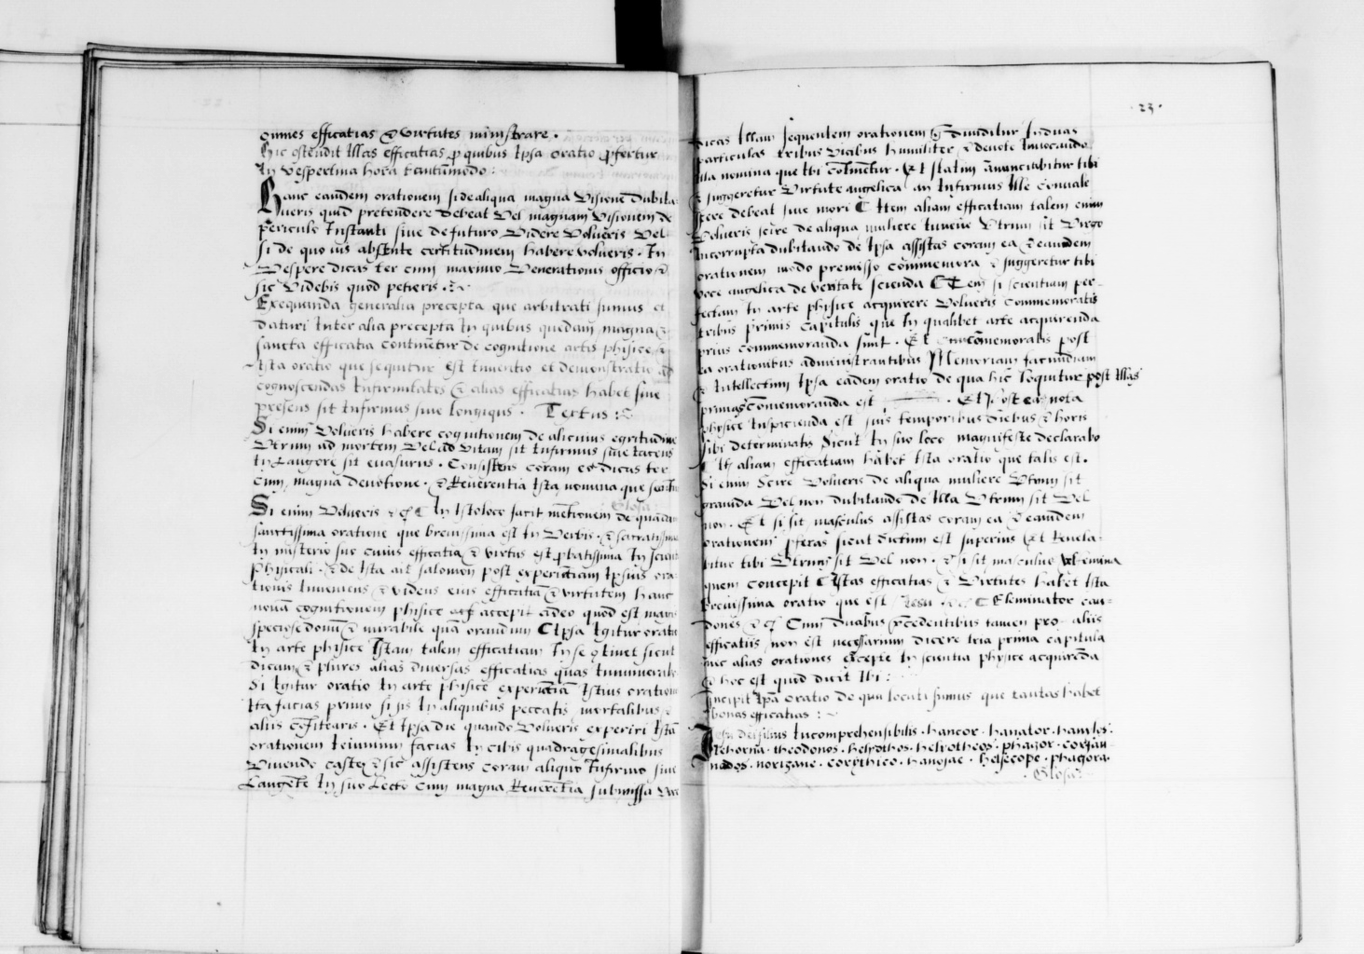 omnes efficatias & virtutes ministrare.
Hic ostendit Illas efficatias p quibus Ipsa oratio profertur
In Vespertina hora tantummodo:
Hanc eandem orationem si de aliqua magna Visione Dubita
ueris quid pretendere Debeat Vel magnam Visionem de
periculo Instanti siue de futuro Videre Volueris Vel
Si de quo uis absente certitudinem habere volueris. In
Vespere dicas ter cum maximo Venerationis officio &
sic Videbis quod petieris.
Exequenda generalia precepta que arbitrati sumus et
daturi Inter alia precepta In quibus quedam magna &
sancta efficatia continetur de cognitione artis phisice &
Ista oratio que sequitur est Inuentio et demonstratio ad
cognoscendas Infirmitates & alias efficatias habet siue
presens sit Infirmus siue longiqus. Textus:
Si enim Volueris habere cognitionem de alicuius egritudine
Vtrum ad mortem Vel ad Vitam sit Infirmus siue iacens
In Langore sit euasurus. Consistens coram eo dicas ter
Cum magna deuotione. & Reuerentia Ista nomina que
Glosa
Si enim Volueris &c In Isto loco facit mentionem de quadam
sanctissima oratione que breuissima est In Verbis. & sacratissima
In misterio suo cuius efficatia & virtus est probatissima In
phisicali. & de Ista ait salomon post experientiam Ipsius ora
tionis Inueniens & videns eius efficatiam & virtutem hanc
nouam cognitionem phisice accepit adeo quod est magis
speciose donum & mirabile quam orandum Ipsa Igitur oratio
In arte phisice Istam talem efficatiam In se continet sicut
dicam & plures alias diuersas efficatias quas Innumerabiles
Si Igitur oratio In arte phisice experientiam Istius orationis
Ita facias primo si sis In aliquibus peccatis mortalibus &
aliis confitearis. Et Ipsa die quando Volueris experiri Istam
orationem Ieiunium facias In cibis quadragesimalibus
Viuendo caste & sic assistens coram aliquo Infirmo siue
Langente In suo Lecto Cum magna Reuerentia submissa
23.
dicas Illam sequentem orationem & Diuiditur Induas
particulas tribus Viabus humiliter & deuote Inuocando
Illa nomina que Ibi continentur. Et statim annunciabitur tibi
& suggeretur Virtute angelica an Infirmus Ille
debeat siue mori Item aliam efficatiam talem enim
Volueris scire de aliqua muliere Iuuene Vtrum sit Virgo
Incorrupta dubitando de Ipsa assistas coram ea & eandem
orationem modo premisso commemora & suggeretur tibi
voce angelica de veritate scienda Item si scientiam per-
fectam In arte phisice acquirere Volueris commemoratis
tribus primis capitulis que In qualibet arte acquirenda
prius commemoranda sunt. Et commemoratis post
ea orationibus administrantibus Memoriam facundiam
& Intellectum Ipsa eadem oratio de qua hic Loquitur post Illas
primas commemoranda est. Et Post ea nota
phisice Inspicienda est suis temporibus Diebus & horis
sibi determinatis sicut In suo loco magnifeste declarabo
It aliam efficatiam habet Ista oratio que talis est.
Si enim Scire Volueris de aliqua muliere Vtrum sit
prauida Vel non dubitando de Illa Vtrum sit Vel
non. Et si sit masculus assistas coram ea & eandem
orationem pferas sicut dictum est superius & Reuela
bitur tibi Vtrum sit Vel non. & si sit masculus vel femina
quem concepit Istas efficatias & Virtutes habet Ista
breuissima oratio que est Iesu &c Eleminator
dones &c Cum duabus precedentibus tamen pro aliis
efficatiis non est necessarium dicere tria prima capitula
nec alias orationes excepte In scientia phisice acquirenda
& hoc est quod dicit Ibi:
Incipit Ipsa oratio de qua locuti sumus que tantas habet
bonas efficatias:
Iesu dei filius Incomprehensibilis. hancor. hanator. hamles.
Iehorna. theodonos. helyothos. helyotheos. phagor. corpan
nados. norizane. corpithico. hanosae. helsecope. phagora.
Glosa